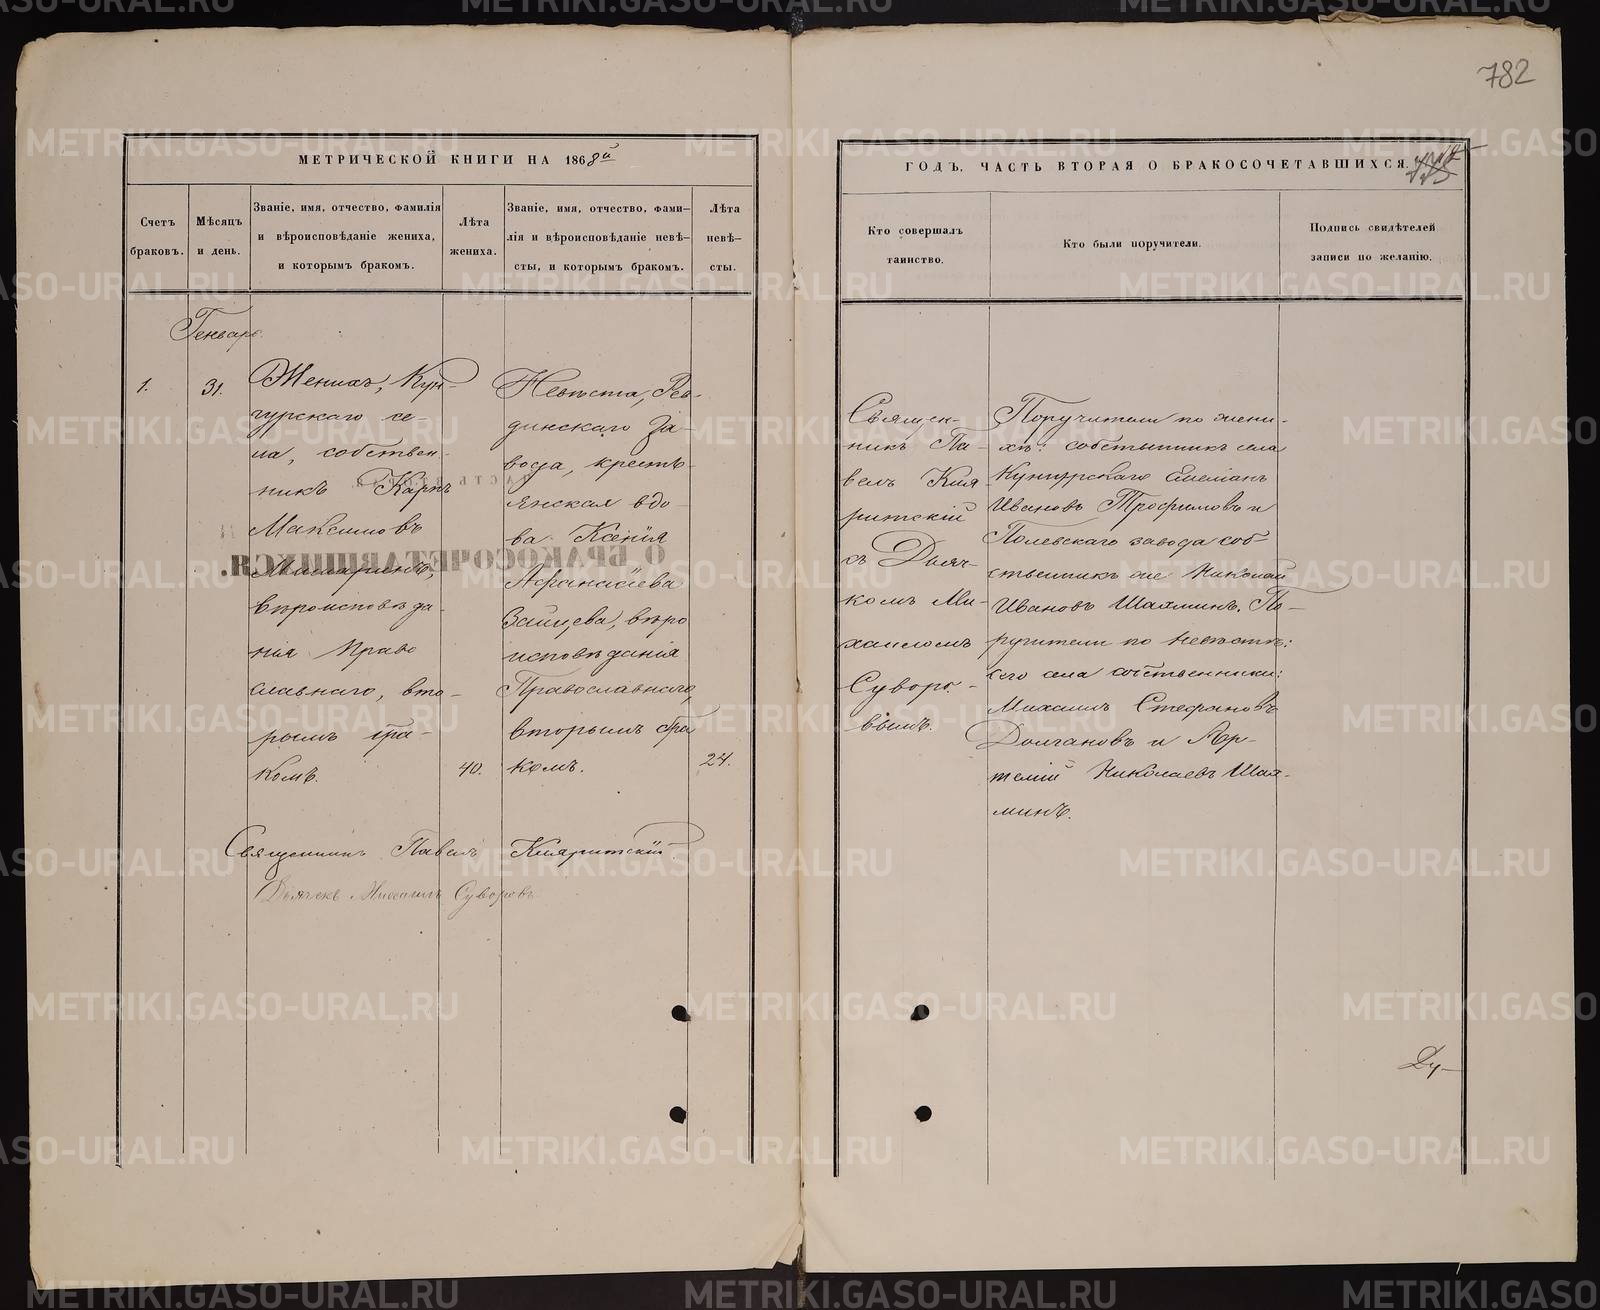 782
МЕТРИЧЕСКОЙ КНИГИ НА 1868й
ГОДЪ. ЧАСТЬ ВТОРАЯ О БРАКОСОЧЕТАВШИХСЯ.
Счетъ
браковъ.
Мѣсяцъ
и день.
Званіе, имя, отчество, фамилія
и вѣроисповѣданіе жениха,
и которымъ бракомъ.
Лѣта
жениха.
Званіе, имя, отчество, фами–
лія и вѣроисповѣданіе невѣ–
сты, и которымъ бракомъ.
Лѣта
невѣ–
сты.
Кто совершалъ
таинство.
Кто были поручители.
Подпись свидѣтелей
записи по желанію.
Генварь.
1.
31.
Женихъ, Кун-
гурскаго се-
ла, собствен-
никъ Карпъ
Максимовъ
вѣроисповѣда-
нія Право
славнаго, вто-
рымъ бра-
комъ.
40.
Невѣста, Рев-
динскаго За-
вода, кресть-
янская вдо-
ва Ксенія
Афанасіева
Зайцева, вѣро
исповѣданія
Православнаго,
вторымъ бра
комъ.
24.
Священ-
никъ Па-
велъ Кля-
ритскій
съ Дьяч-
комъ Ми-
хаиломъ
Суворо-
вымъ.
Поручители по жени-
хѣ: собственникъ села
Кунгурскаго Емельянъ
Ивановъ Трофимовъ и
Полевскаго завода соб-
ственникъ же Николай
Ивановъ Шахминъ. По-
ручители по невѣстѣ:
сего села собственники:
Михаилъ Стефановъ
Долгановъ и Ар-
темій Николаевъ Шах-
минъ.
Священникъ Павелъ Кляритскій.
Дьячекъ Михаилъ Суворовъ
Ду-
METRIKI.GASO-URAL.RU